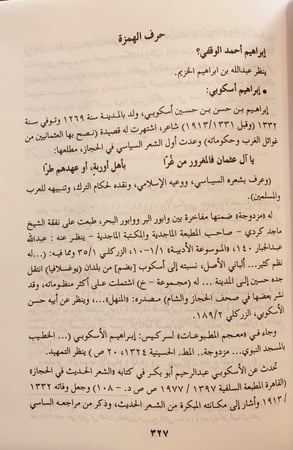 حرف الهمزة
إبراهيم أحمد الوقفي؟
ينظر عبدالله بن ابراهيم الخزيم.
• إبراهيم أسكوبي:
إبراهيم بن حسن بن حسين أسكوبي، ولد بالمدينة سنة ١٢٦٩ وتوفي سنة
١٣٣٢ (وقيل ١٩١٣/١٣٣١) شاعر، اشتهرت له قصيدة (نصح بها العثمانيين من
غوائل الغرب وحكوماته) وعدت أول الشعر السياسي في الحجاز، مطلعها:
يا آل عثمان فالمغرور من غُرّا بأهل أوربة، أو عهدهم طرّا
(وعرف بشعره السياسي، ووعيه الإسلامي، ونقده لحكام الترك، وتنبيهه للعرب
والمسلمين).
له (مزدوجة) ضمنها مفاخرة بين وابور البر ووابور البحر، طبعت على نفقة الشيخ
ماجد كردي – صاحب المطبعة الماجدية والمكتبة الماجدية – ينظر عنه : عبدالله
عبدالجبار ١٤٠، «الموسوعة الأدبية» ١/١٠، الزركلي ٣٥/١ ومما فيه: ...له
نظم كثير... ألباني الأصل، نسبته إلى أسكوب [بضم] من بلدان (يوغسلافيا) انتقل
جده حسين إلى المدينة ... له (مجموعة – خ) اشتملت على أكثر منظوماته، وقد
نشر بعضها في صحف الحجاز والشام) مصدره: «المنهل»... وينظر عن أبيه حسن
الأسكوبي، الزركلي ١٨٩/٢.
وجاء في «معجم المطبوعات» لسركيس: إبراهيم الأسكوبي (... الخطيب
بالمسجد النبوي... مزدوجة.. المط. الحسينية ١٣٢٤، ٢٠ ص) ينظر التمهيد.
تحدث عن الأسكوبي عبدالرحيم أبو بكر في كتابه «الشعر الحديث في الحجاز»
(القاهرة المطبعة السلفية ١٣٩٧ / ١٩٧٧ ص ص د. – ١٠٨) وجعل وفاته ١٣٣٢
/ ١٩١٣ وأشار إلى مكانته المبكرة من الشعر الحديث، وذكر من مراجعه الساسي
٣٢٧